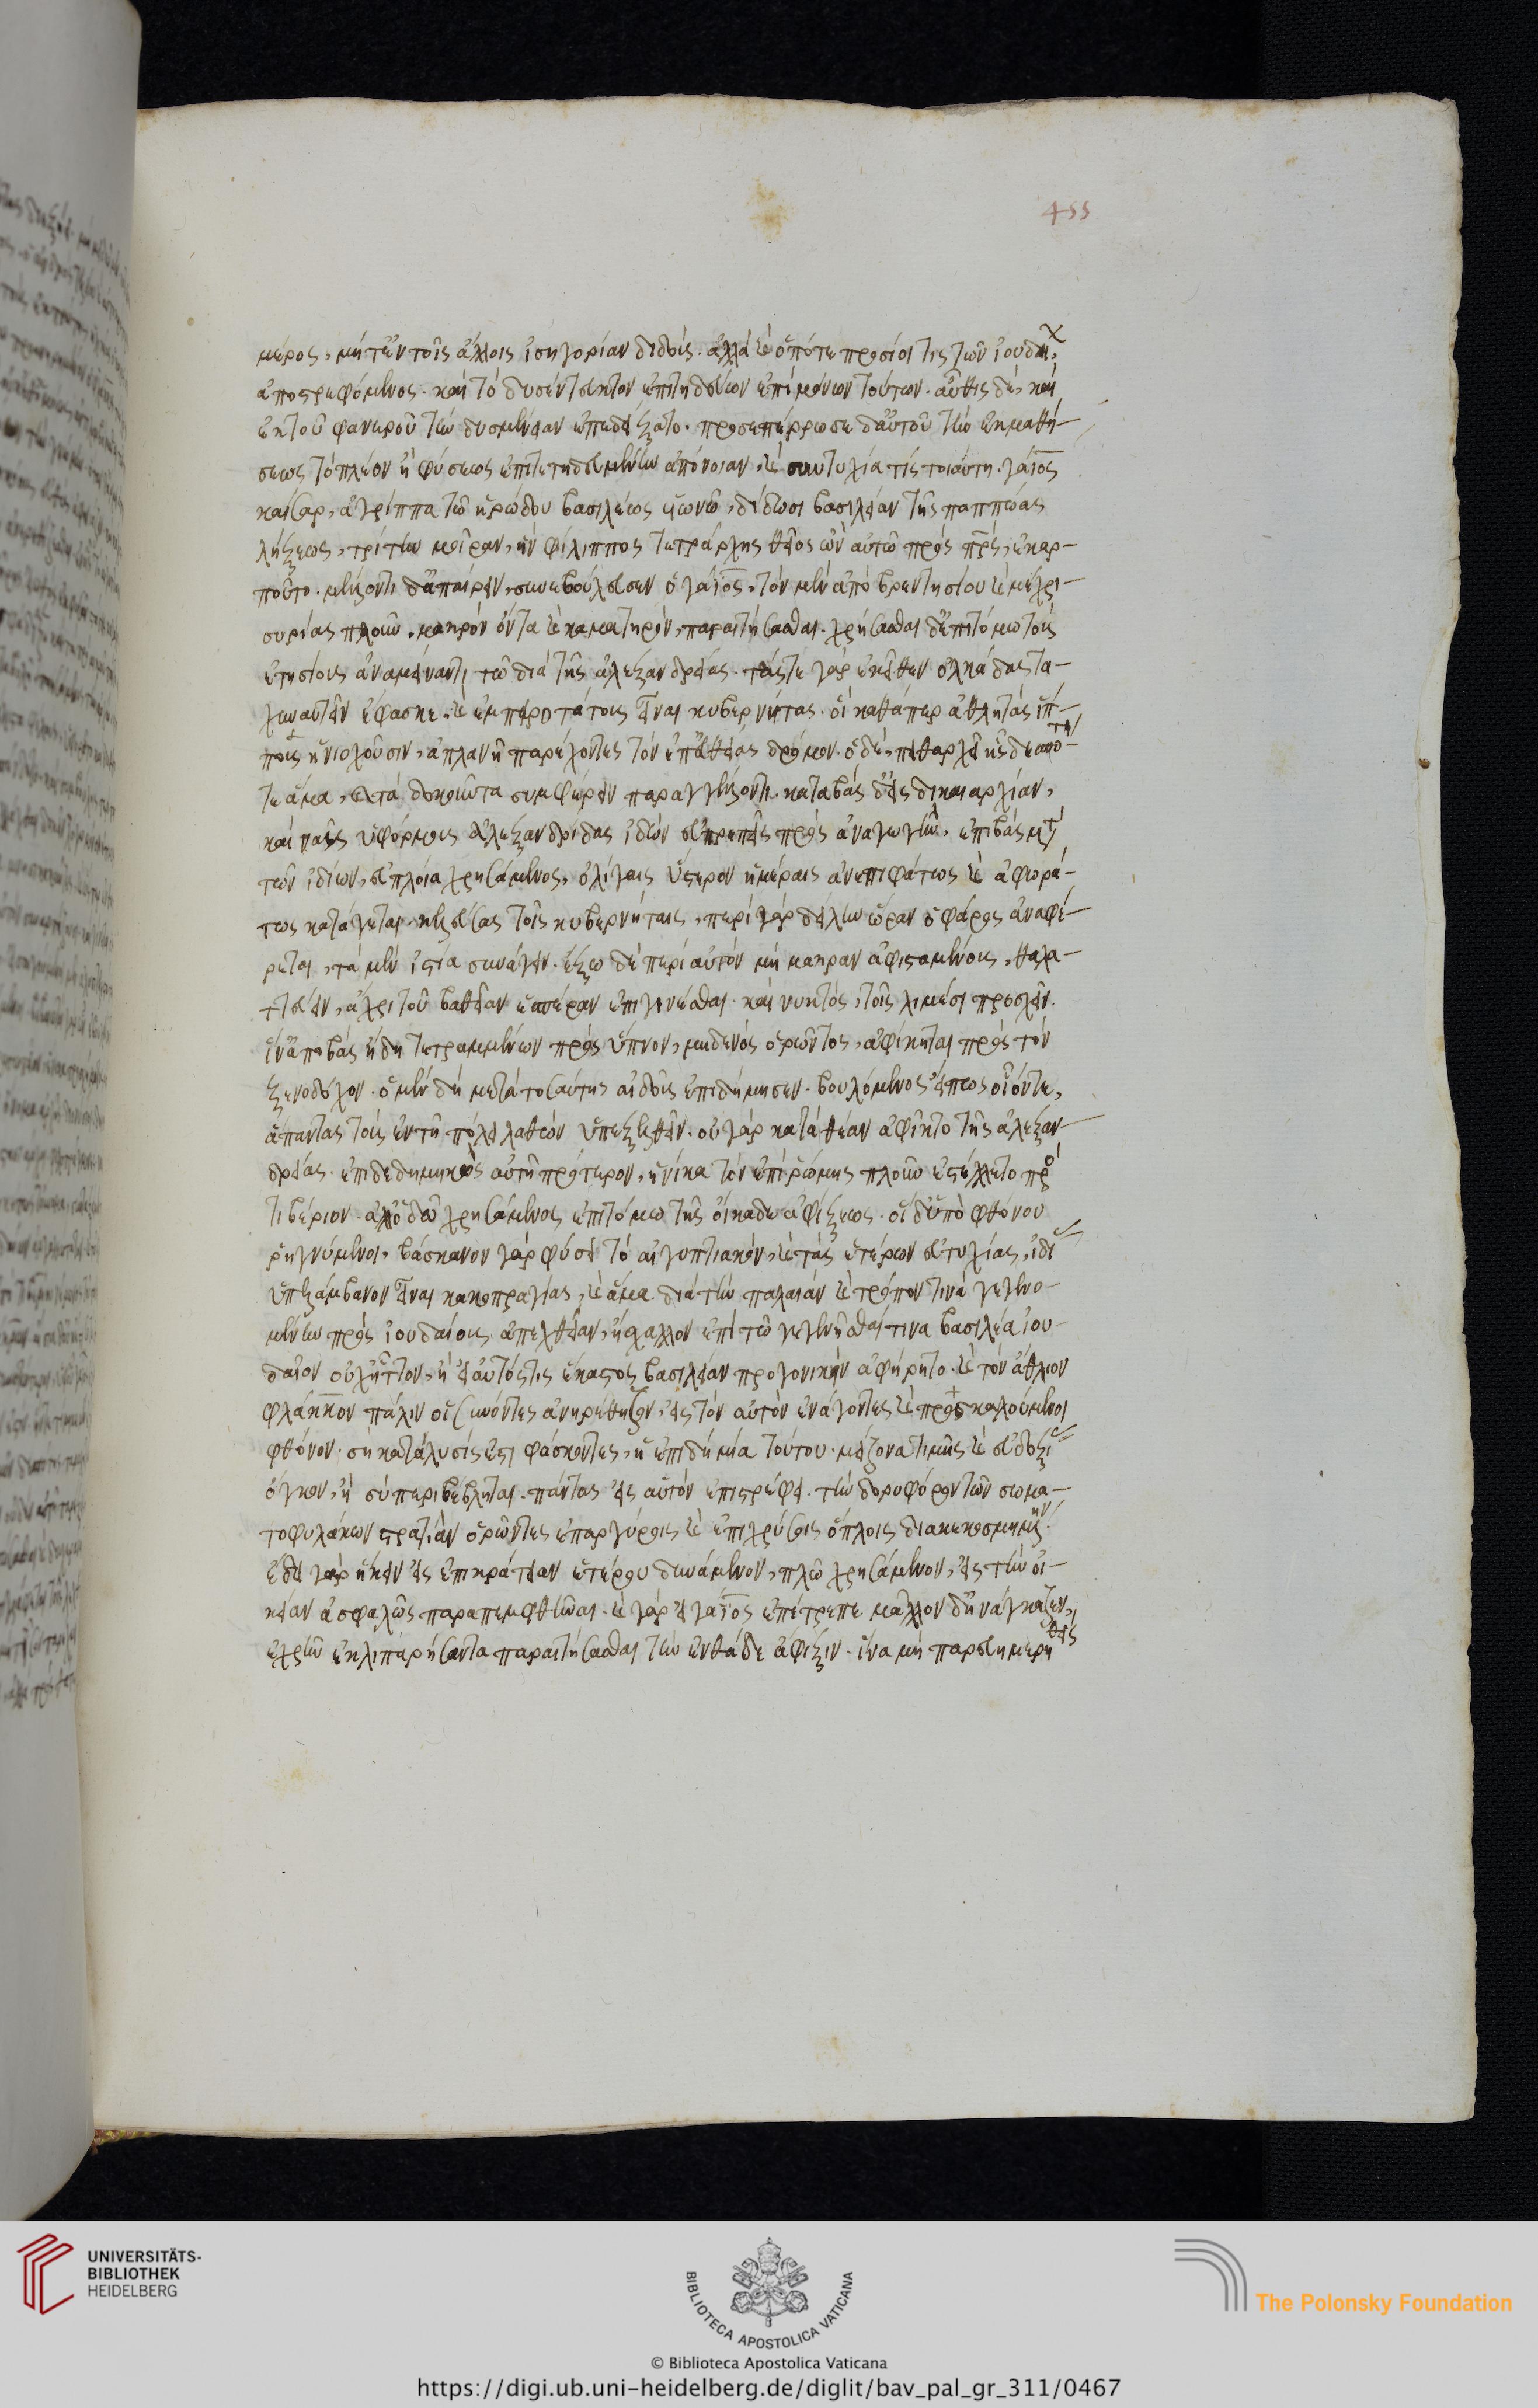 μέρος, μήτ' ἐν τοῖς ἄλλοις ἰσηγορίαν διδούς. ἀλλὰ καὶ ὁπότε προσίοι τις τῶν ἰουδαι,
ἀποστρεφόμενος. καὶ τὸ δυσέντευκτον ἐπιτηδεύων ἐπὶ μόνων τούτων. αὖθις δὲ, καὶ
ἐκ τοῦ φανεροῦ τὴν δυσμένειαν ἐπεδείξατο. προσεπέρρωσε δ' αὐτοῦ τὴν ἐκ μαθή-
σεως τὸ πλέον ἢ φύσεως ἐπιτετηδευμένην ἀπόνοιαν, καὶ συντυχία τίς τοιάυτη. γάϊος
καίσαρ, ἀγρίππα τῶ ἡρώδου βασιλέως υἱωνῶ, δίδωσι βασιλείαν τῆς παππώας
λήξεως, τρίτην μοῖραν, ἣν φίλιππος τετράρχης θεῖος ὢν αὐτῶ πρὸς πρς, ἐκαρ-
ποῦτο. μέλλοντι δ' ἀπαίρειν, συνεβούλευσεν ὁ γάϊος, τὸν μὲν ἀπὸ βρεντησίου καὶ μέχρι
συρίας πλοῦν. μακρὸν ὄντα καὶ καματηρὸν, παραιτήσασθαι. χρήσασθαι δ' ἐπιτόμω τοὺς
ἐτησίους ἀναμείναντι, τῶ διὰ τῆς ἀλεξανδρείας. τάς τε γὰρ ἐκεῖθεν ὁλκάδας τα-
χυναυτεῖν ἔφασκε. καὶ ἐμπειροτάτους εἶναι κυβερνήτας. οἳ καθάπερ ἀθλητὰς ἵπ-
πους ἡνιοχοῦσιν, ἀπλανῆ παρέχοντες τὸν ἐπ' εὐθείας δρόμον. ὁ δὲ, πειθαρχεῖ ὡς δεσπότη
τε ἅμα, καὶ τὰ δοκοῦντα συμφέρειν παραγγέλλοντι. καταβὰς δ' εἰς δικαιαρχίαν,
καὶ ναῦς ὑφόρμους ἀλεξανδρίδας ἰδὼν εὐπρεπεῖς πρὸς ἀναγωγὴν, ἐπιβὰς μετὰ
τῶν ἰδίων, εὐπλοία χρησάμενος, ὀλίγαις ὕστερον ἡμέραις ἀνεπιφάτως καὶ ἀφωρά-
τως κατάγεται. κελεύσας τοῖς κυβερνήταις, περὶ γὰρ δείλην ὥραν ὁ φάρος ἀναφέ-
ρεται, τὰ μὲν ἱστία συνάγειν. ἔξω δὲ περὶ αὐτὸν μὴ μακρὰν ἀφισταμένους, θαλα-
ττεύειν, ἄχρι τοῦ βαθεῖαν ἑσπέραν ἐπιγενέσθαι. καὶ νυκτὸς, τοῖς λιμέσι προσχεῖν.
ἵν' ἀποβὰς ἤδη τετραμμένων πρὸς ὕπνον, μηδενὸς ὁρῶντος, ἀφίκηται πρὸς τὸν
ξενοδόχον. ὁ μὲν δὴ μετὰ τοσαύτης αἰδοῦς ἐπιδήμησεν. βουλόμενος εἴ πως οἷόν τε,
ἅπαντας τοὺς ἐν τῆ πόλει λαθὼν ὑπεξελθεῖν. οὐ γὰρ κατὰ θέαν ἀφῖκτο τῆς ἀλεξαν-
δρείας. ἐπιδεδημηκὼς αὐτῆ πρότερον, ἡνίκα τὸν ἐπὶ ῥώμης πλοῦν ἐστέλλετο πρὸ
τιβέριον. ἀλλ' ὁδῶ χρησάμενος ἐπιτόμω τῆς οἴκαδε ἀφίξεως. οἱ δ' ὑπὸ φθόνου
ῥηγνύμενοι, βάσκανον γὰρ φύσει τὸ αἰγυπτιακὸν, καὶ τὰς ἑτέρων εὐτυχίας, ἰδί
ὑπελάμβανον εἶναι κακοπραγίας, καὶ ἅμα διὰ τὴν παλαιὰν καὶ τρόπον τινὰ γεγενο-
μένην πρὸς ἰουδαίους ἀπέχθειαν, ἤσχαλλον ἐπὶ τῶ γεγενῆσθαί τινα βασιλέα ἰου-
δαῖον οὐχ ἧττον, ἢ εἰ αὐτός τις ἕκαστος βασιλείαν προγονικὴν ἀφήρητο. καὶ τὸν ἄθλιον
φλάκκον πάλιν οἱ συνόντες ἀνηρέθηζον, εἰς τὸν αὐτὸν ἐνάγοντες καὶ προσκαλούμενοι
φθόνον. σὴ κατάλυσίς ἐστι φάσκοντες, ἡ ἐπιδημία τούτου. μείζονα τιμῆς καὶ εὐδοξι
ὄγκον, ἢ σὺ περιβέβληται. πάντας εἰς αὑτὸν ἐπιστρέφει. τὴν δορυφόρον τῶν σωμα-
τοφυλάκων στρατιὰν ὁρῶντες ἐπαργύροις καὶ ἐπιχρύσοις ὅπλοις διακεκοσμημένην.
ἔδει γὰρ ἥκειν εἰς ἐπικράτειαν ἑτέρου δυνάμενον, πλῶ χρησάμενον, εἰς τὴν οἰ-
κείαν ἀσφαλῶς παραπεμφθῆναι. καὶ γὰρ εἰ γάϊος ἐπέτρεπε μᾶλλον δ' ἠνάγκαζεν,
ἐχρῆν ἐκλιπαρήσαντα παραιτήσασθαι τὴν ἐνθάδε ἄφιξιν. ἵνα μὴ παρευημερηθεὶς
UNIVERSITÄTS-
BIBLIOTHEK
HEIDELBERG
BIBLIOTECA APOSTOLICA VATICANA
The Polonsky Foundation
© Biblioteca Apostolica Vaticana
https://digi.ub.uni-heidelberg.de/diglit/bav_pal_gr_311/0467